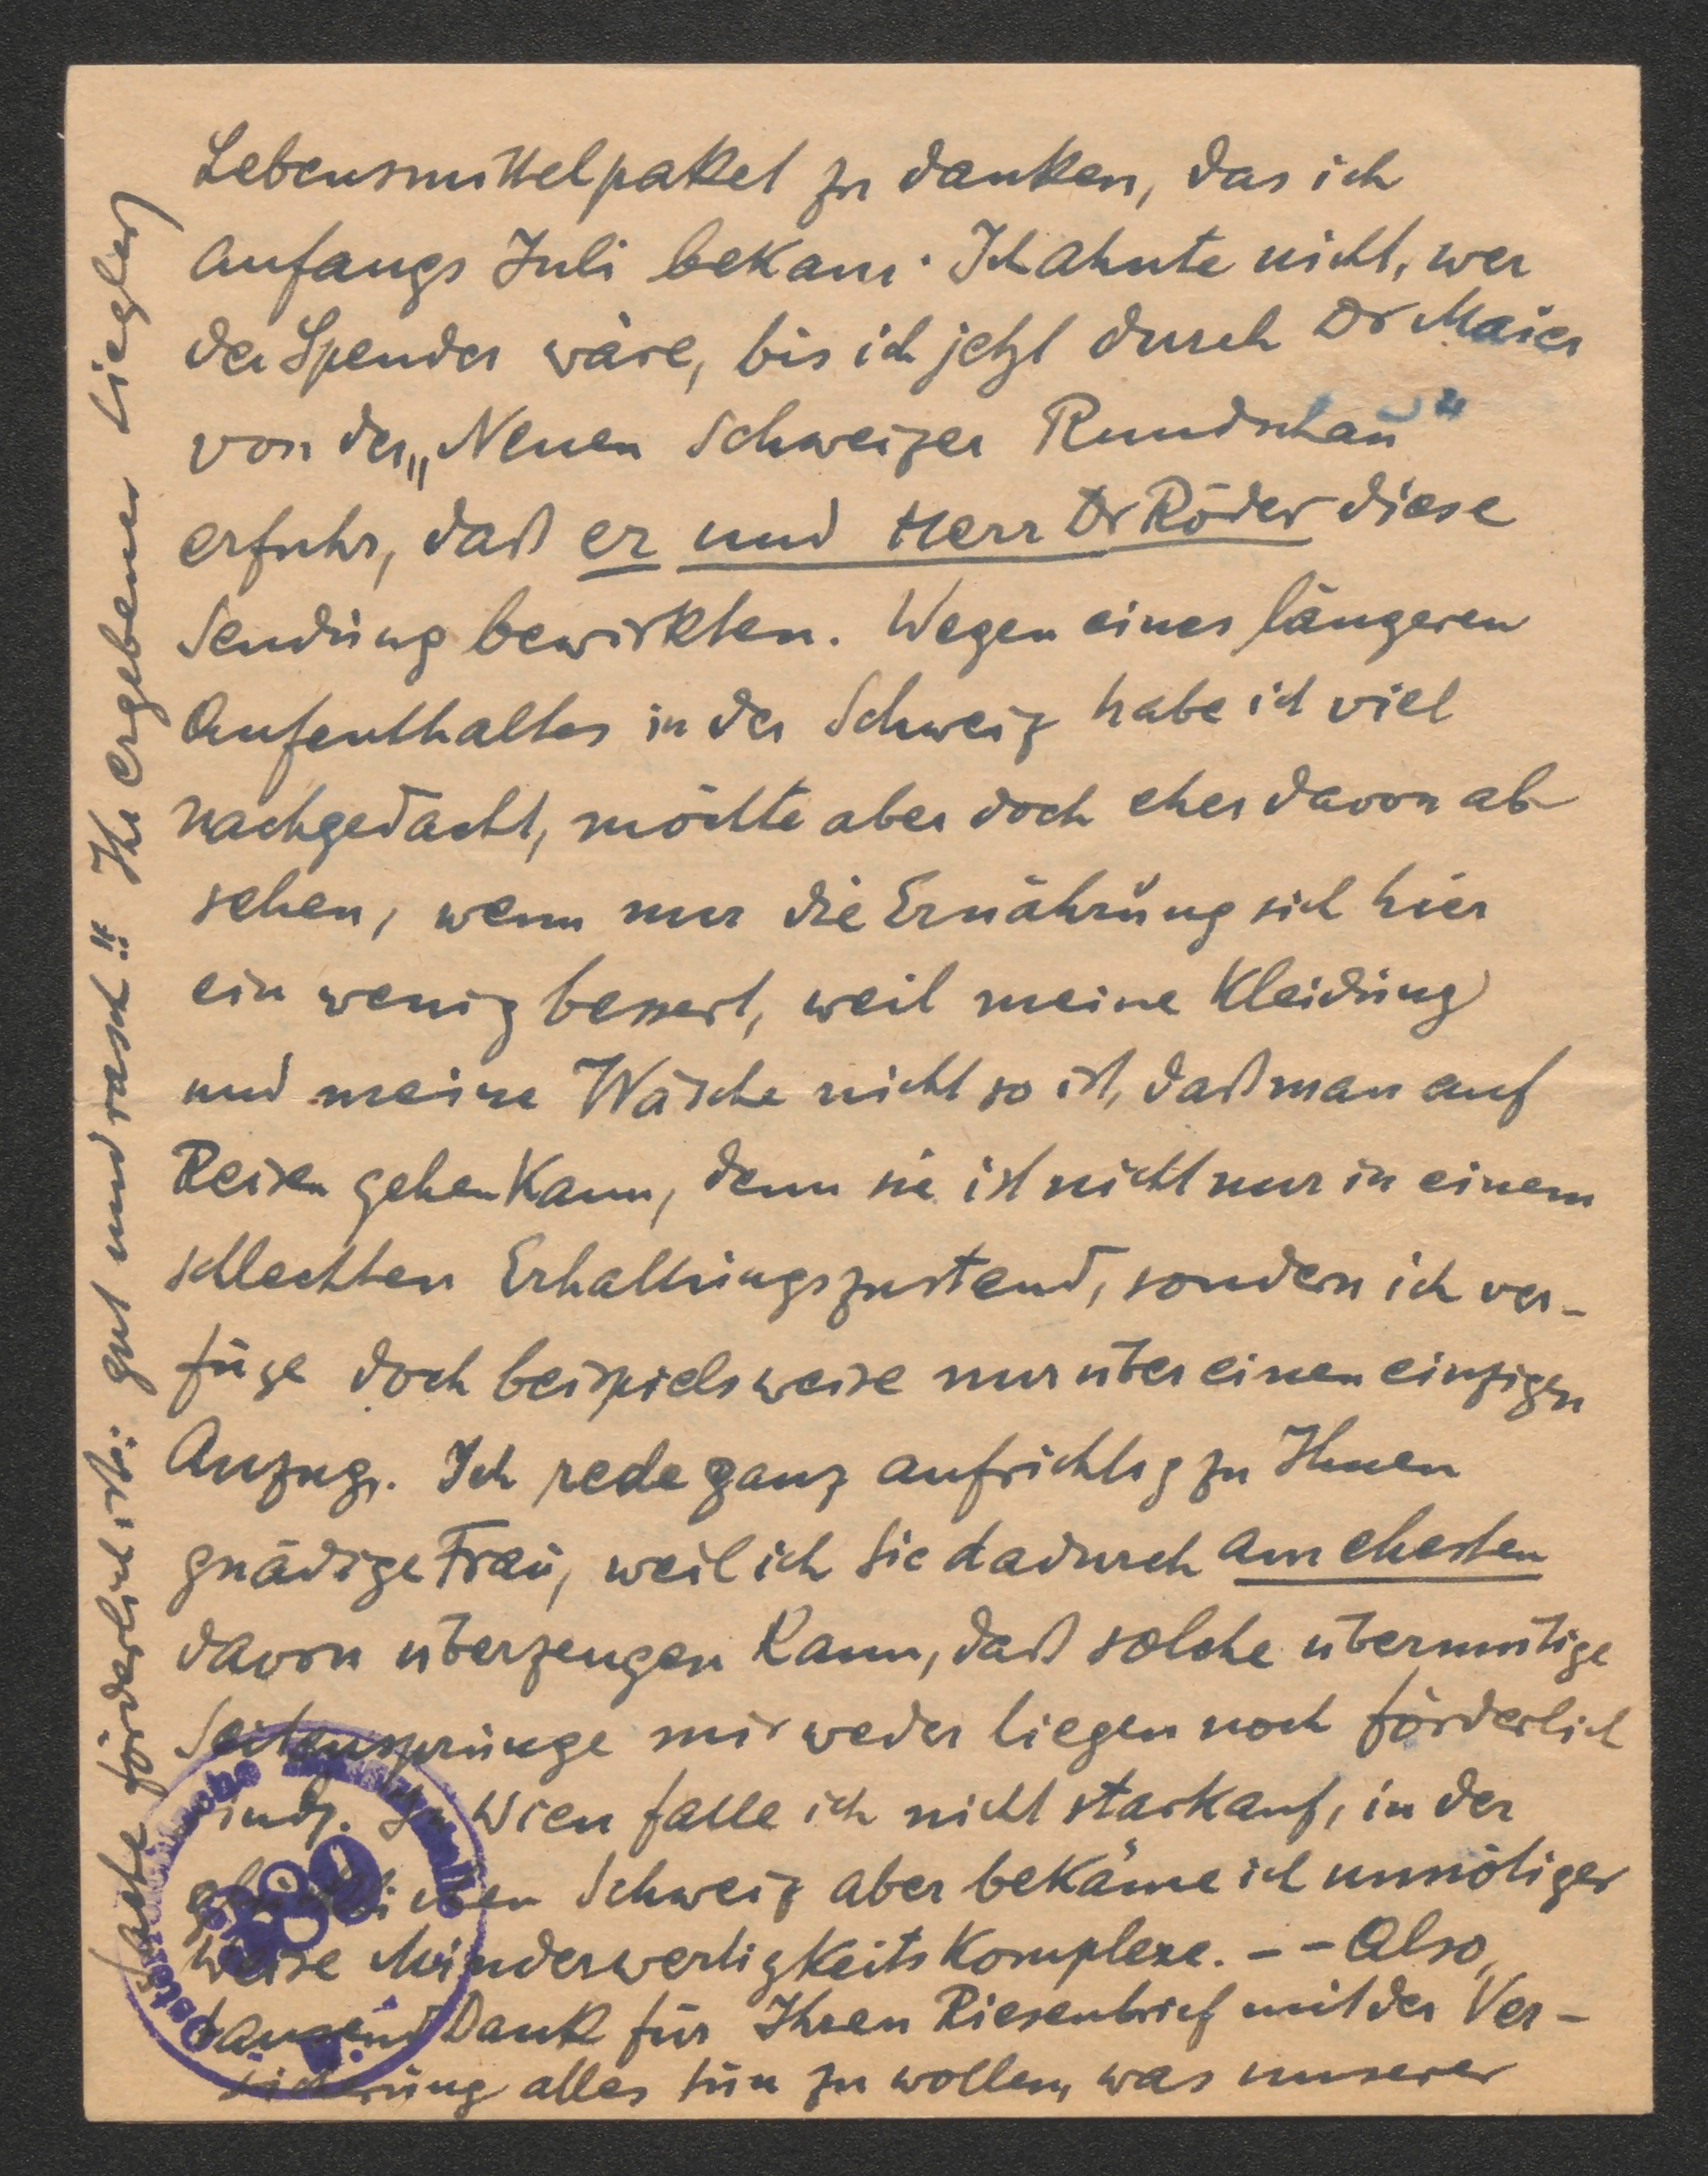 Lebensmittelpaket zu danken, das ich
anfangs Juli bekam. Ich ahnte nicht, wer
der Spender wäre, bis ich jetzt durch Dr Maier
von der „Neuen Schweizer Rundschau"
erfuhr, daß er und Herr Dr Röder diese
Sendung bewirkten. Wegen eines längeren
Aufenthaltes in der Schweiz habe ich viel
nachgedacht, möchte aber doch eher davon ab
sehen, wenn nur die Ernährung sich hier
ein wenig bessert, weil meine Kleidung
und meine Wäsche nicht so ist, daß man auf
Reisen gehen kann, denn sie ist nicht nur in einem
schlechten Erhaltungszustand, sondern ich ver-
füge doch beispielsweise nur über einen einzigen
Anzug. Ich rede ganz aufrichtig zu Ihnen
gnädige Frau, weil ich Sie dadurch am ehesten
davon überzeugen kann, daß solche übermütige
Seitensprünge mir weder liegen noch förderlich
sind. In Wien falle ich nicht stark auf, in der
Schweiz aber bekäme ich unnötiger
Weise Minderwertigkeitskomplexe. -- Also,
tausend Dank für Ihren Riesenbrief mit der Ver-
sicherung alles tun zu wollen, was unserer
Sache förderlich ist: gut und rasch!! Ihr ergebener Liegler
Österreichische
389